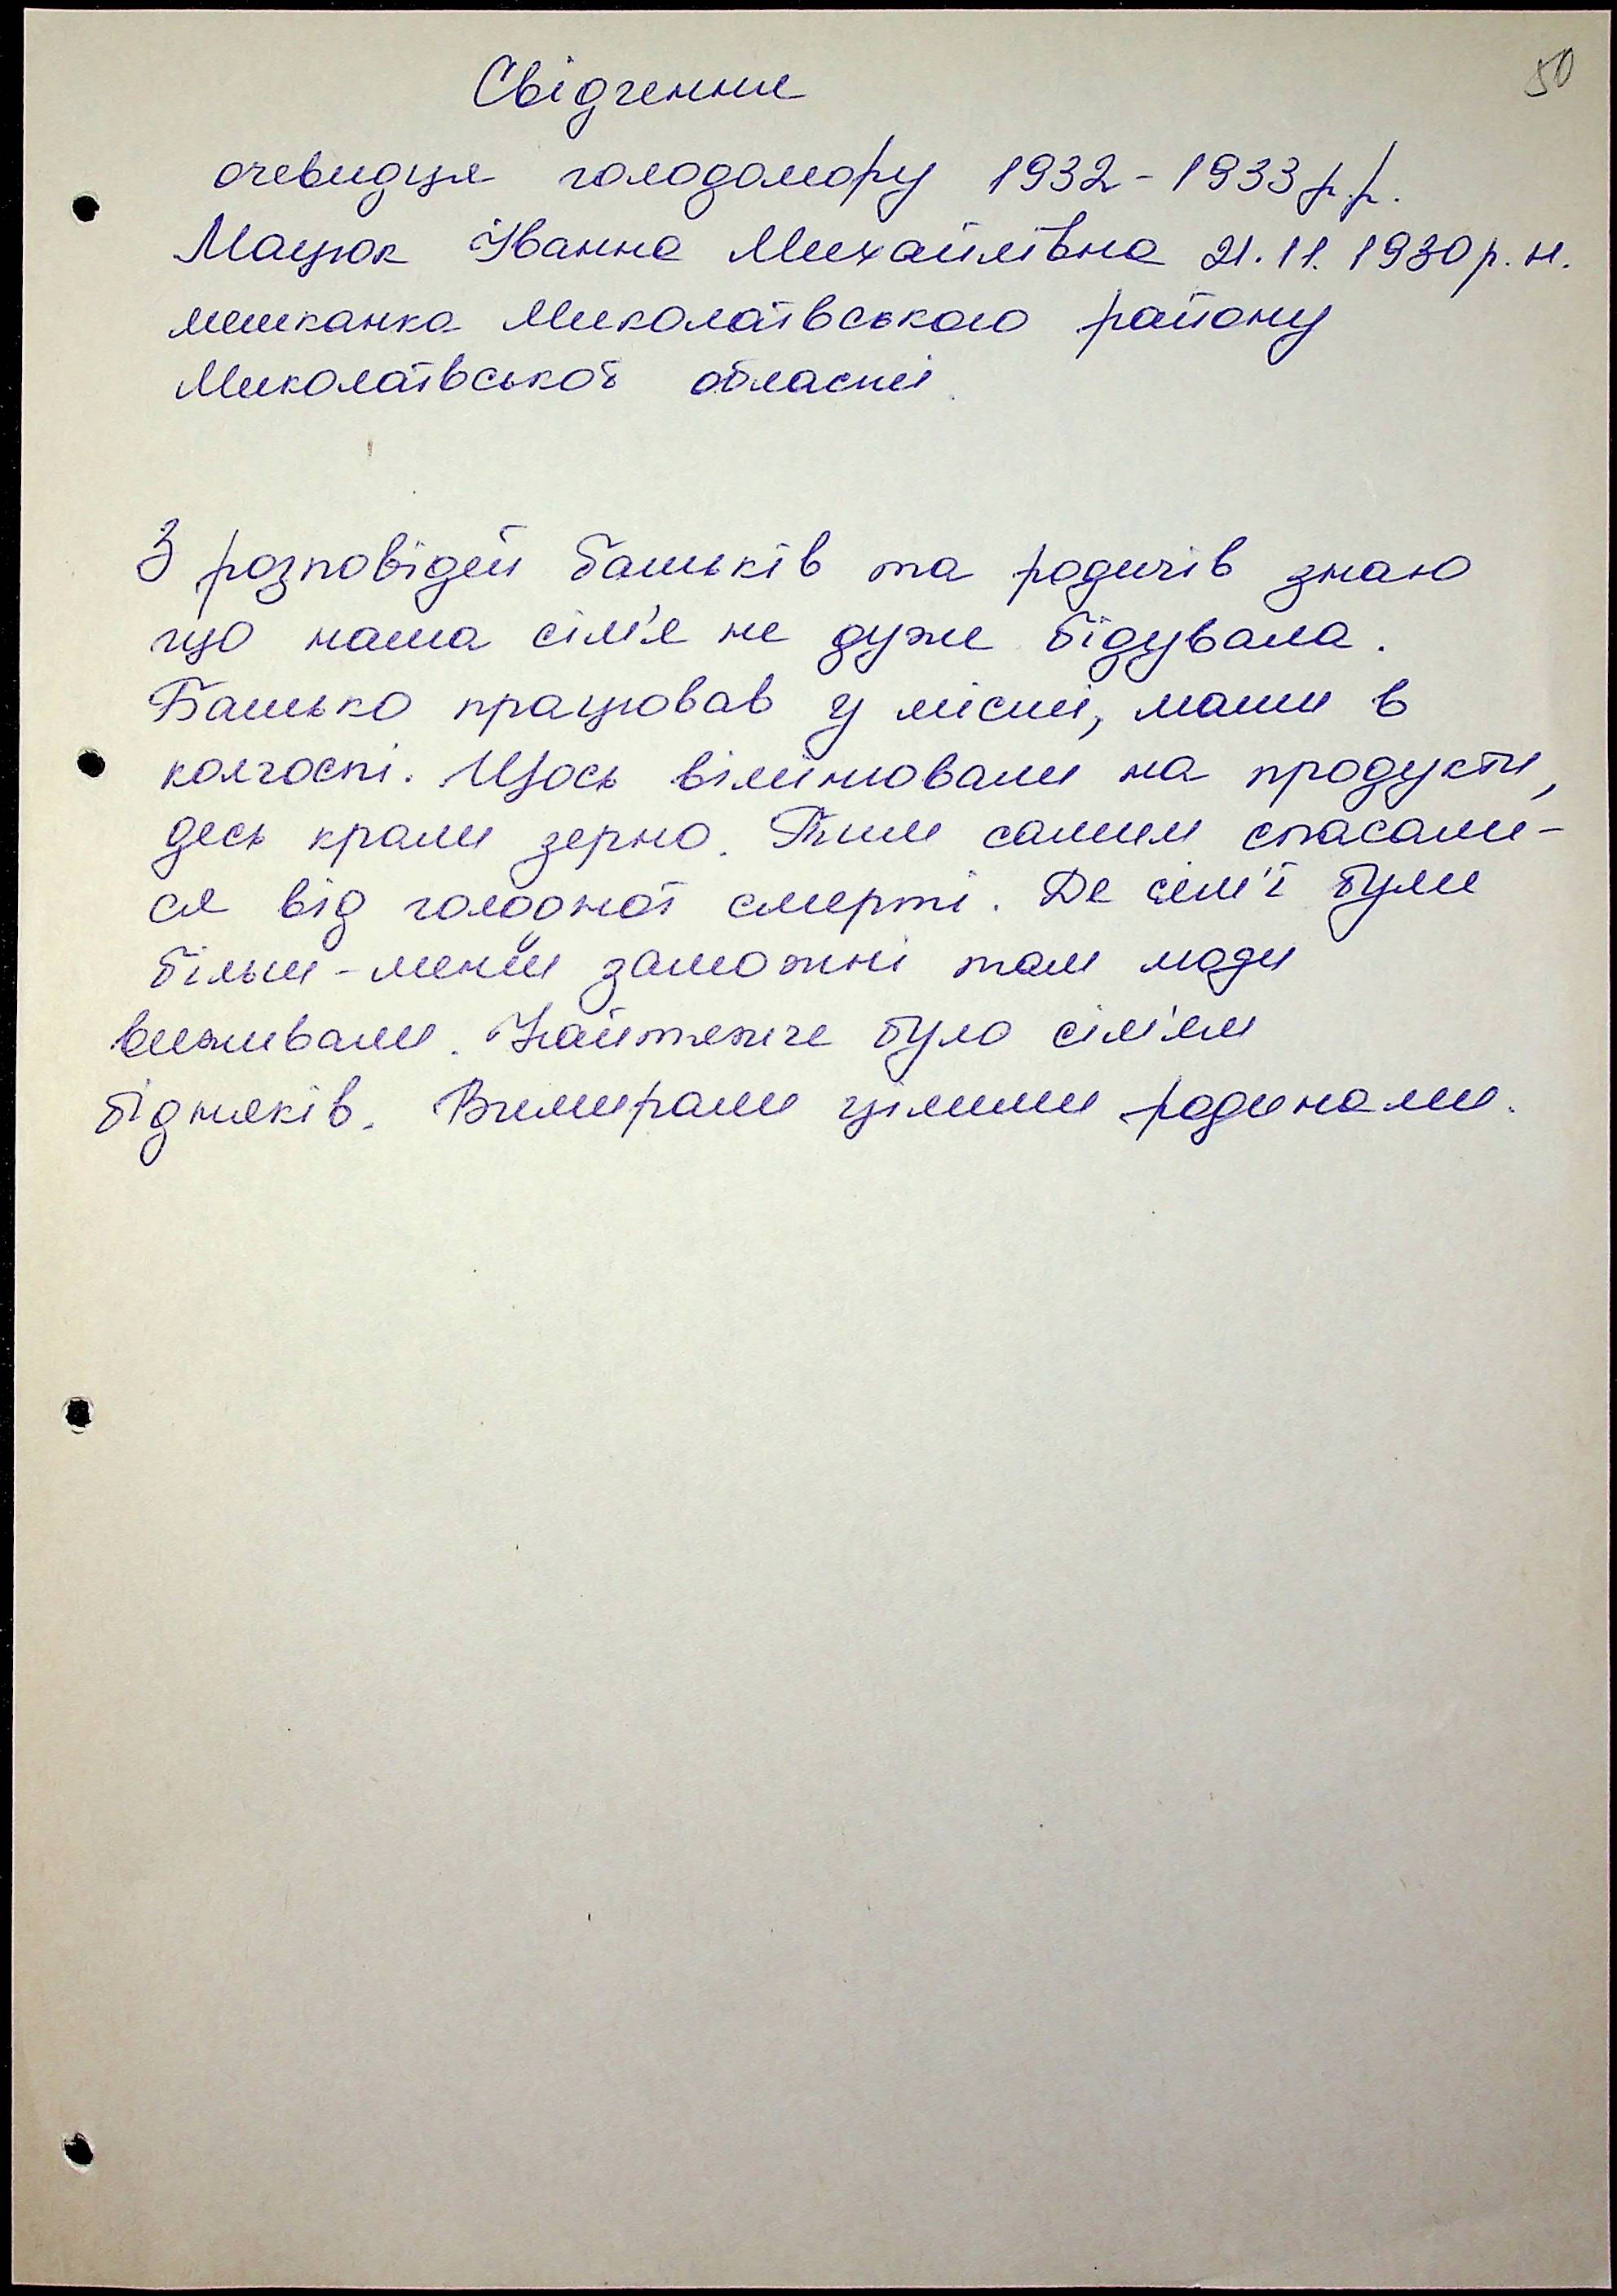 50
Свідчення
очевидця голодомору 1932-1933 р.р.
Мацюк Іванна Михайлівна 21.11.1930 р.н.
мешканка Миколаївського району
Миколаївської області.
З розповідей батьків та родичів знаю
що наша сім'я не дуже бідувала.
Батько працював у місті, мати в
колгоспі. Щось вімінювали на продукти,
десь крали зерно. Тим самим спасали-
ся від голодної смерті. Де сім'ї були
більш-менш заможні там люди
виживали. Найтяжче було сім'ям
бідняків. Вимирали цілими родинами.